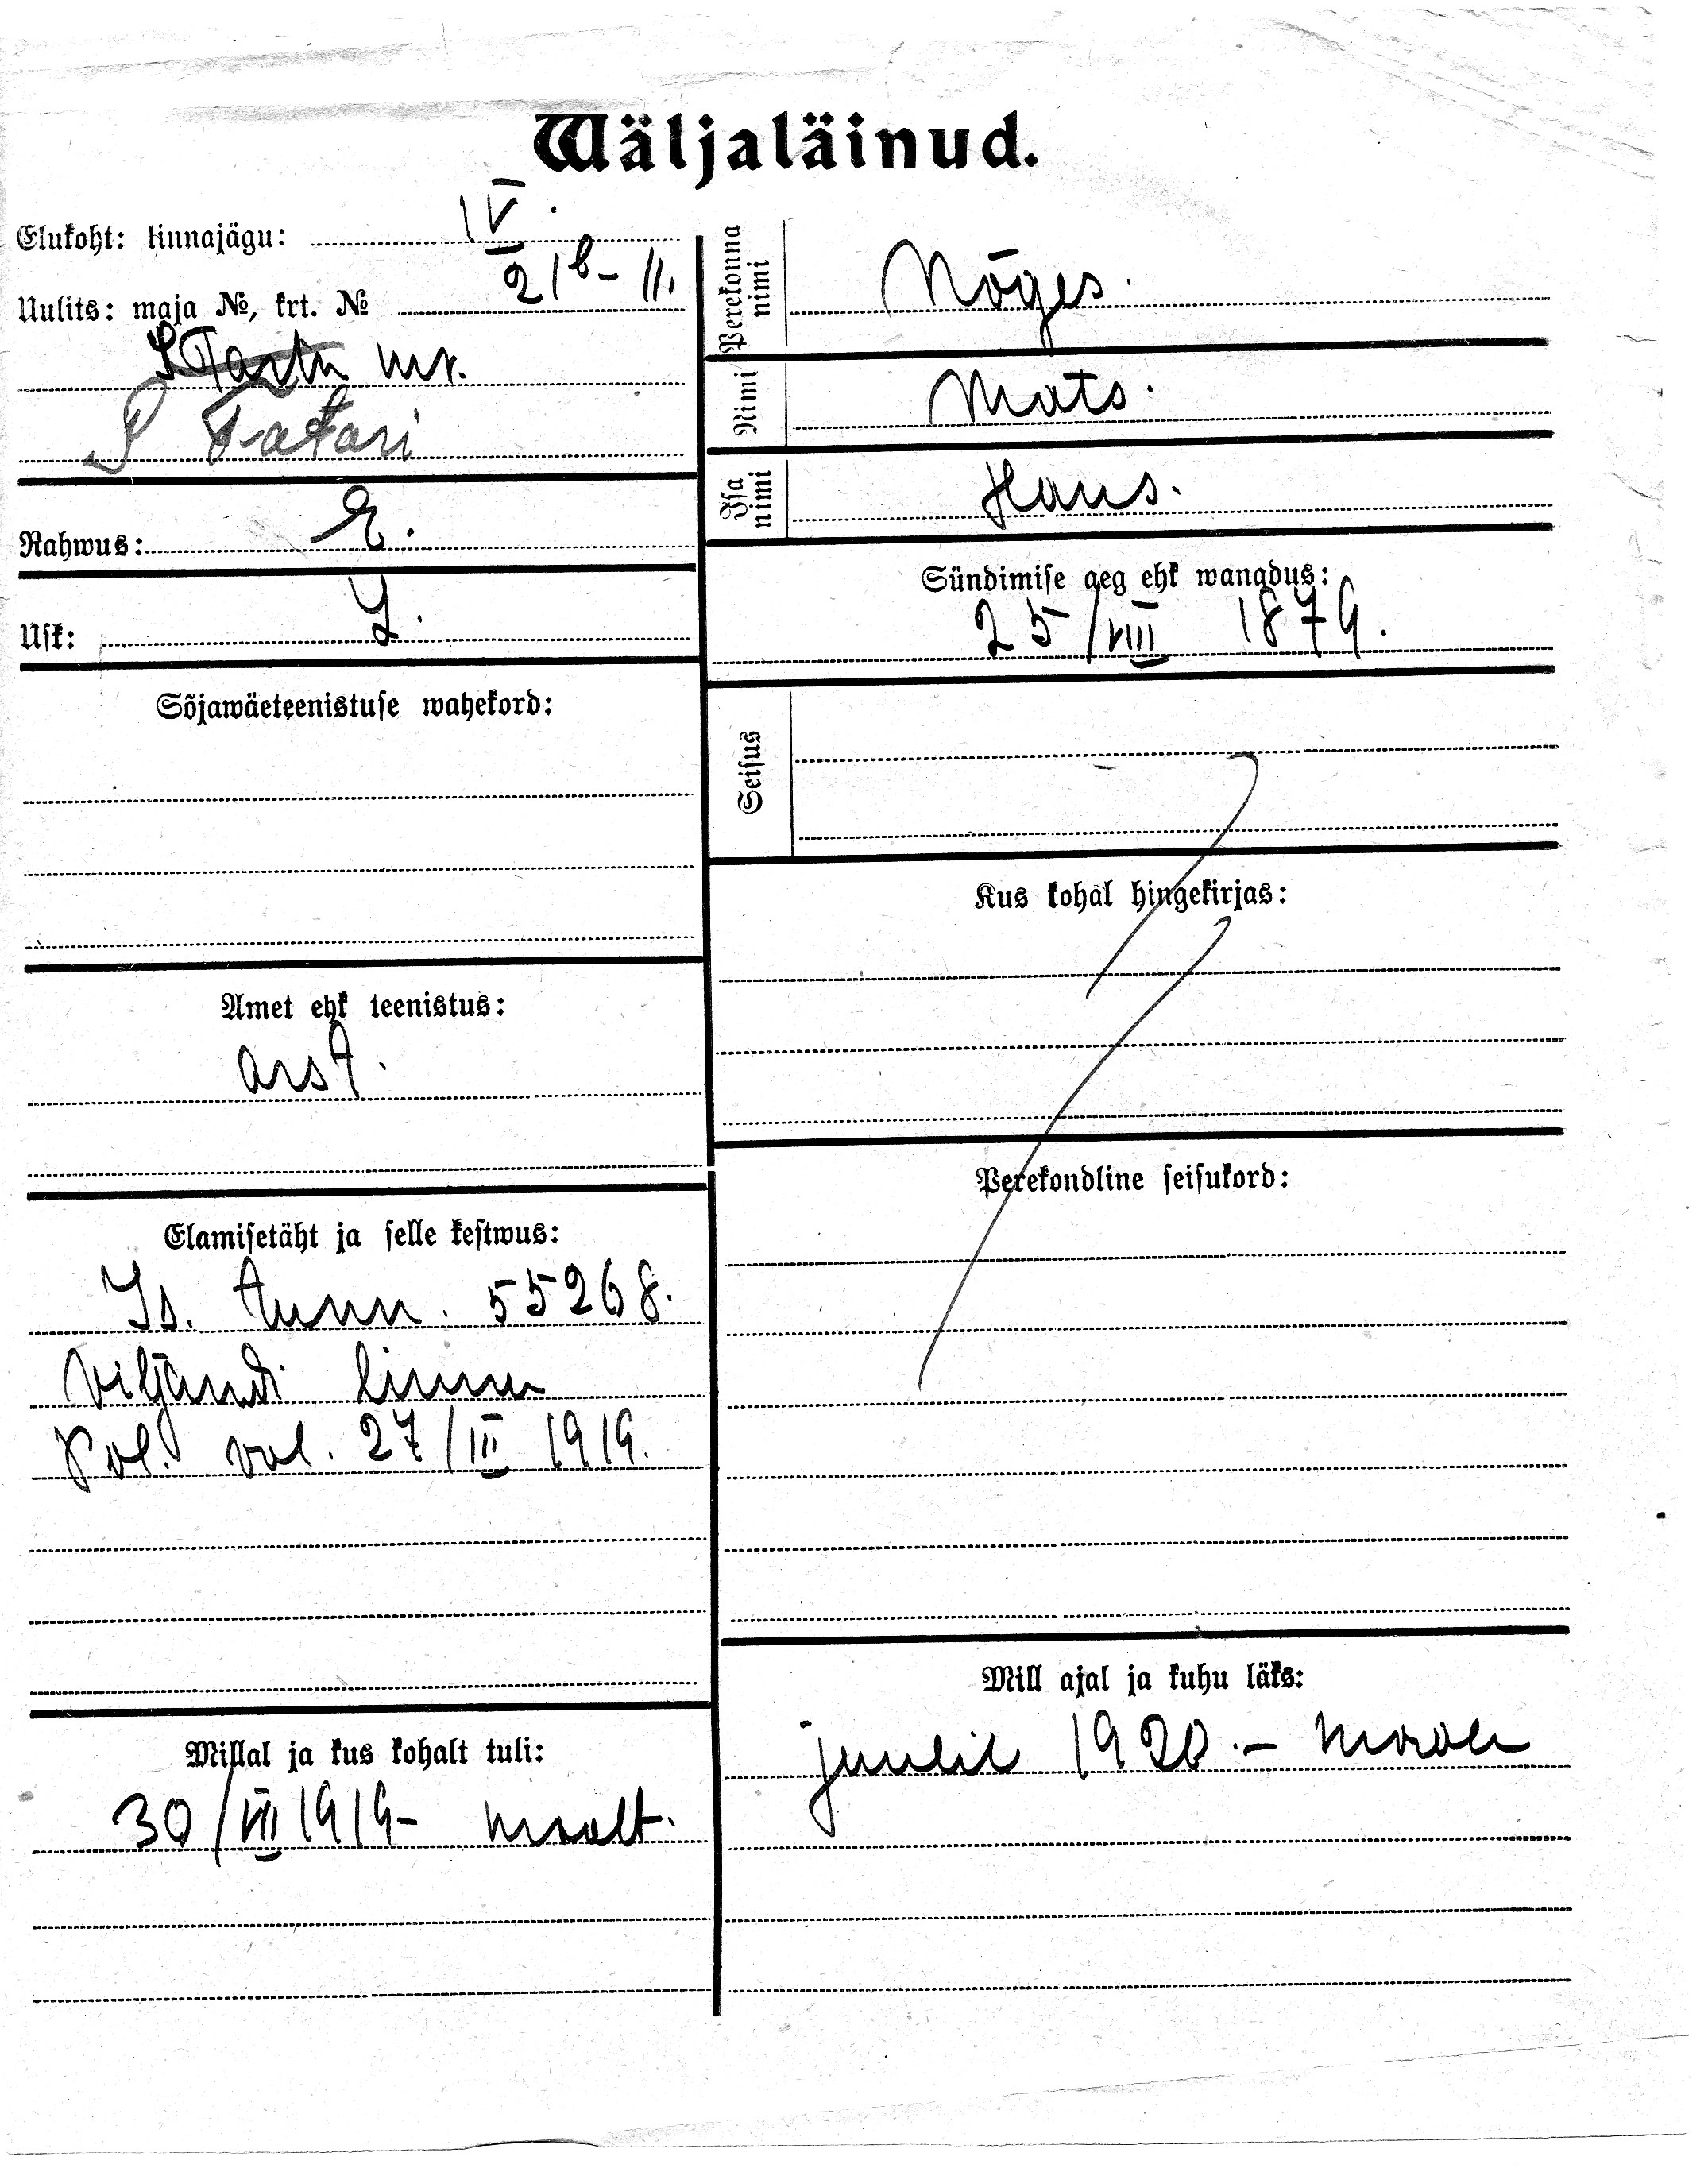 Wäljaläinud.
Elukoht: linnajägu: IV.
Uulits: maja №, krt. № 21b- 11.
S Tartu mr.
P Tatari
Rahwus: E.
Usk: L.
Sõjawäeteenistuse wahekord:
Amet ehk teenistus:
arst.
Elamisetäht ja selle kestwus:
Is. tunn. 55268.
Viljandi linna
Pol. val. 27/III 1919.
Millal ja kus kohalt tuli:
30/VII 1919- maalt.
Perekonna nimi Nõges.
Nimi Mats.
Isa nimi Hans.
Sündimise aeg ehk wanadus:
25/VIII 1879.
Seisus
Kus kohal hingekirjas:
Perekondline seisukord:
Mill ajal ja kuhu läks:
juulil 1920.- maale